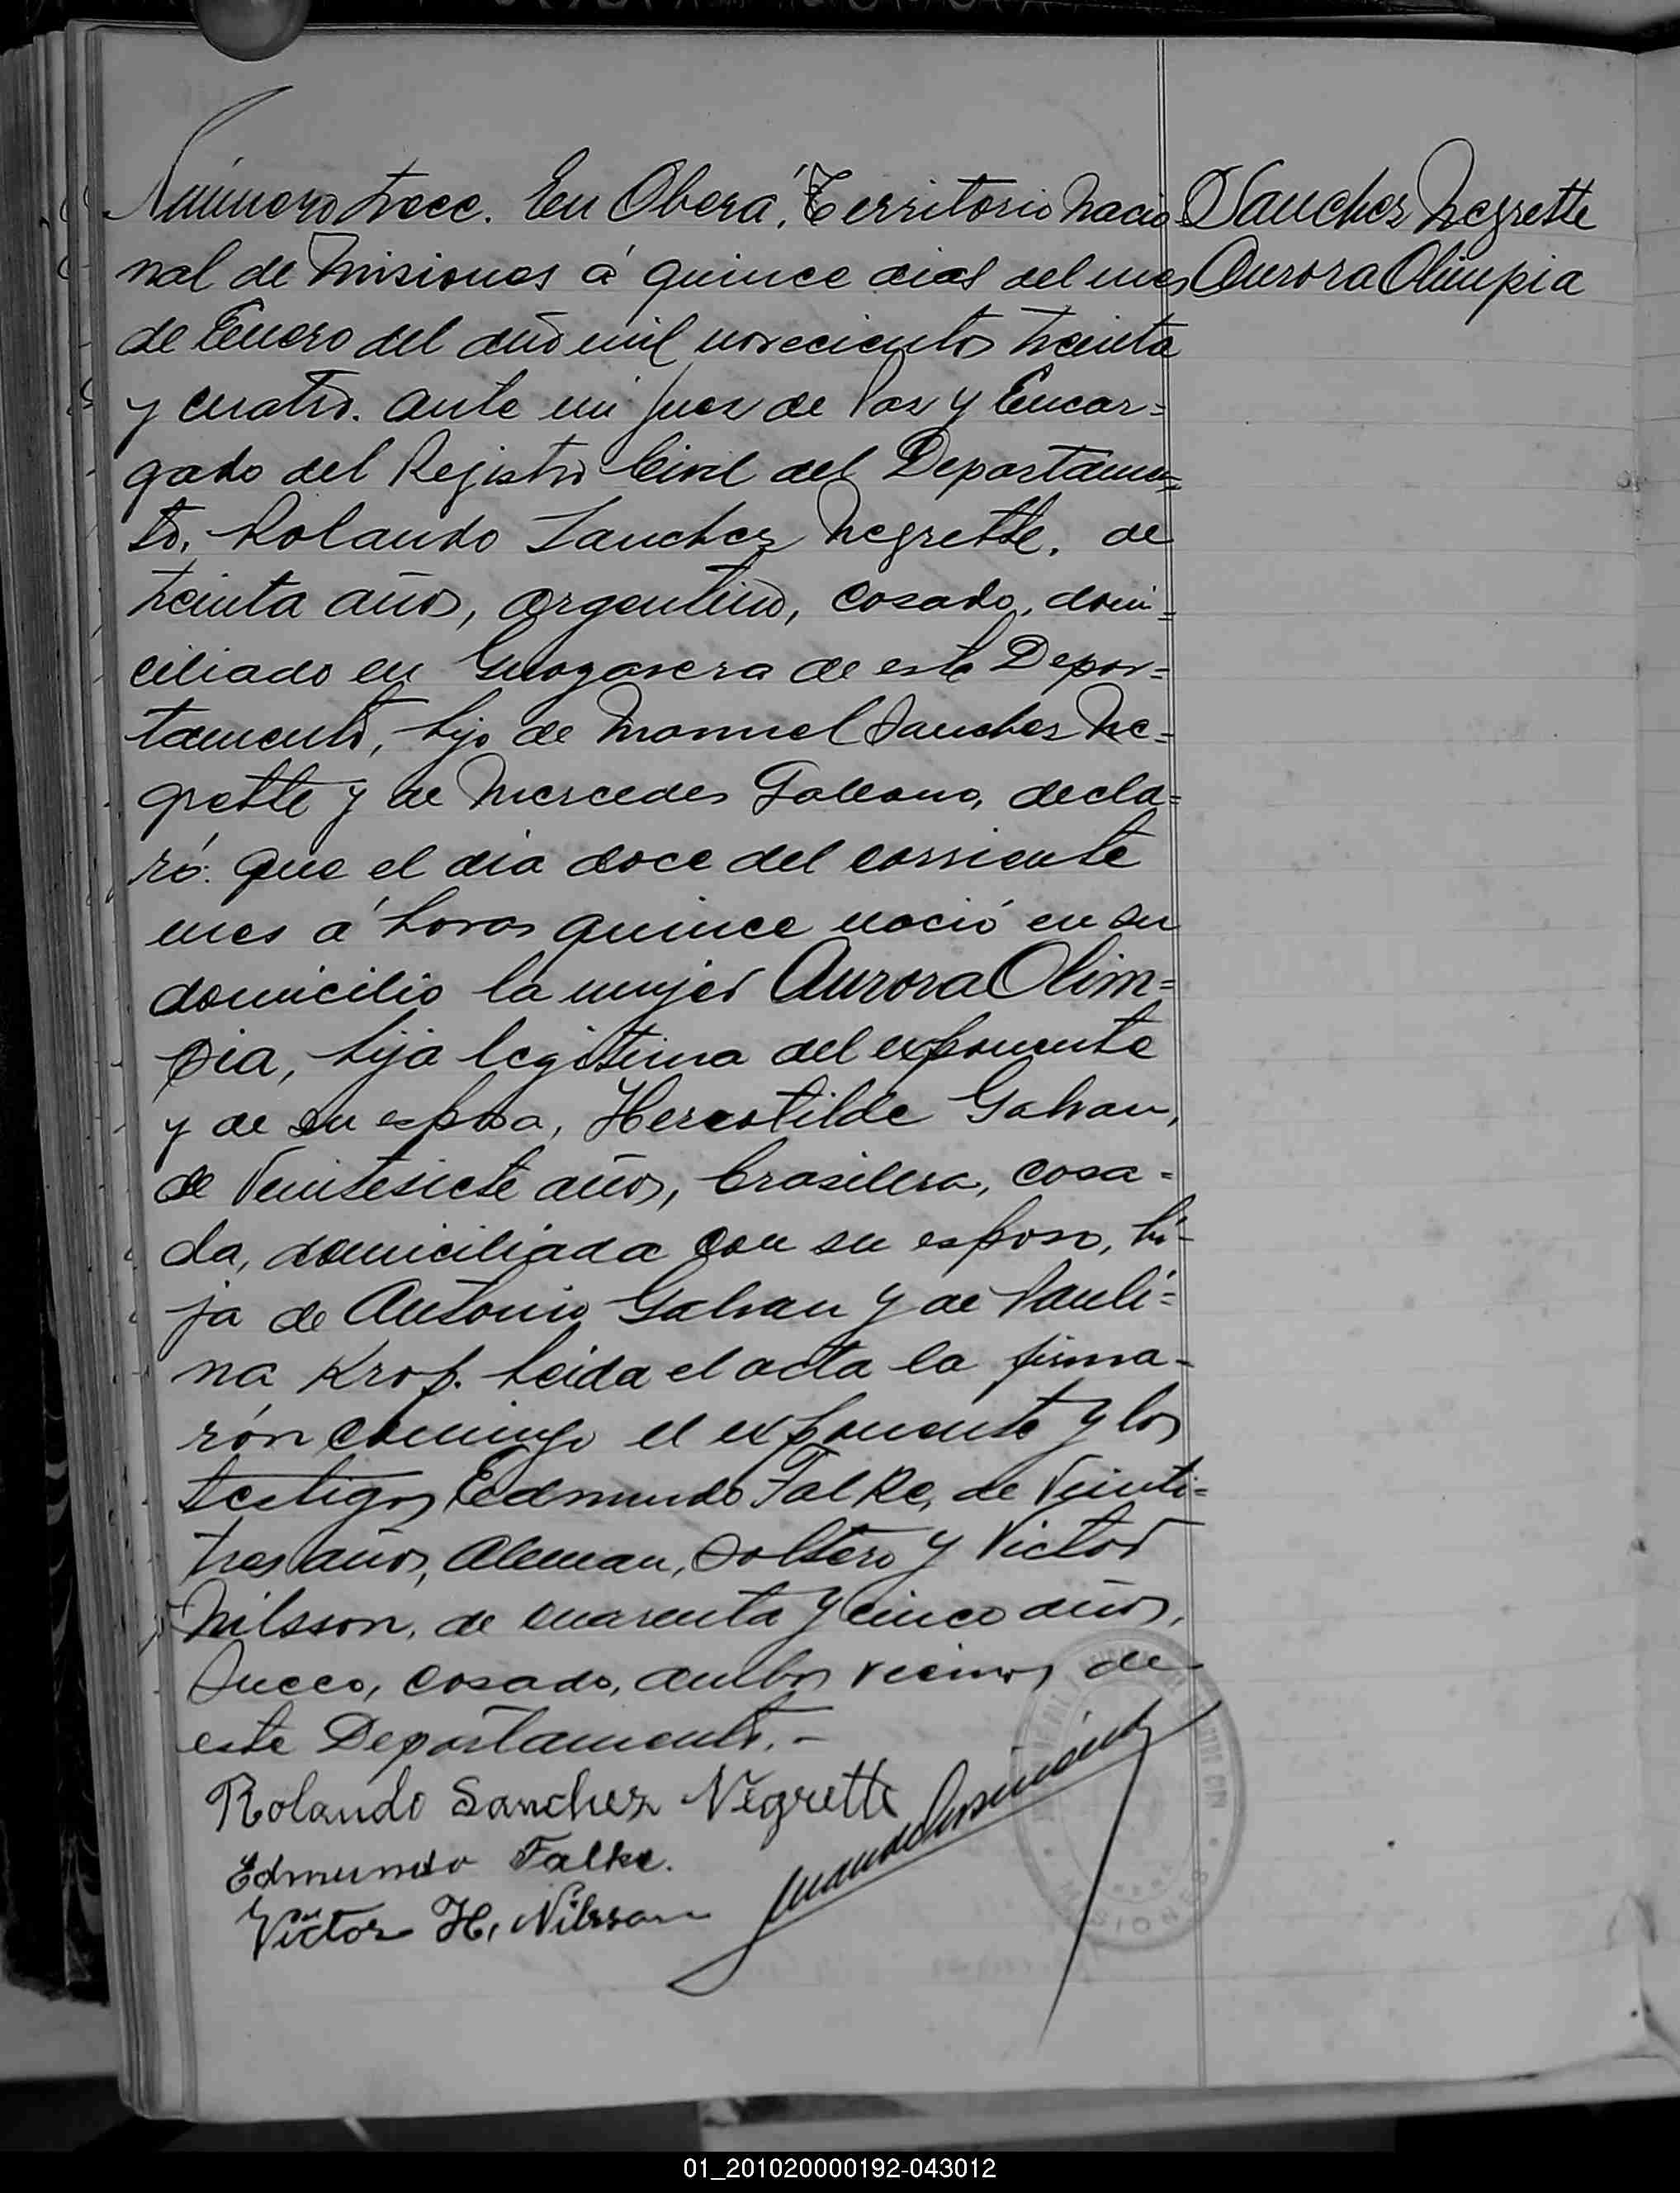 Número trece. En Oberá, Territorio Nacio-
nal de Misiones á quince dias del mes
de Enero del año mil novecientos treinta
y cuatro. ante mi Juez de Paz y Encar=
gado del Rejistro Civil del Departamen=
to, Rolando Sanchez Negrette, de
treinta años, argentino, casado, domi=
ciliado en Guayavera de este Depar=
tamento, hijo de Manuel Sanchez Ne=
grette y de Mercedes Galeano, decla=
ró: que el dia doce del corriente
mes á horas quince nació en su
domicilio la mujer Aurora Olim=
pia, hija legitima del exponente
y de su esposa, Herotilde Galvan,
de Veintesiete años, brasilera, casa=
da, domiciliada con su esposo, hi-
ja de Antonio Galvan y de Pauli=
na Krof. Leida el acta la firma-
rón conmigo el exponente y los
testigos Edmundo Falke, de Veinti=
tres años, Aleman, Soltero y Victor
Nilsson, de cuarenta y cinco años,
Sueco, casado, ambos vecinos de
este Departamento.-
Rolando Sanchez Negrette
Edmundo Falke.
Victor H. Nilsson
Sanchez Negrette
Aurora Olimpia
MISIONES
01_201020000192-043012